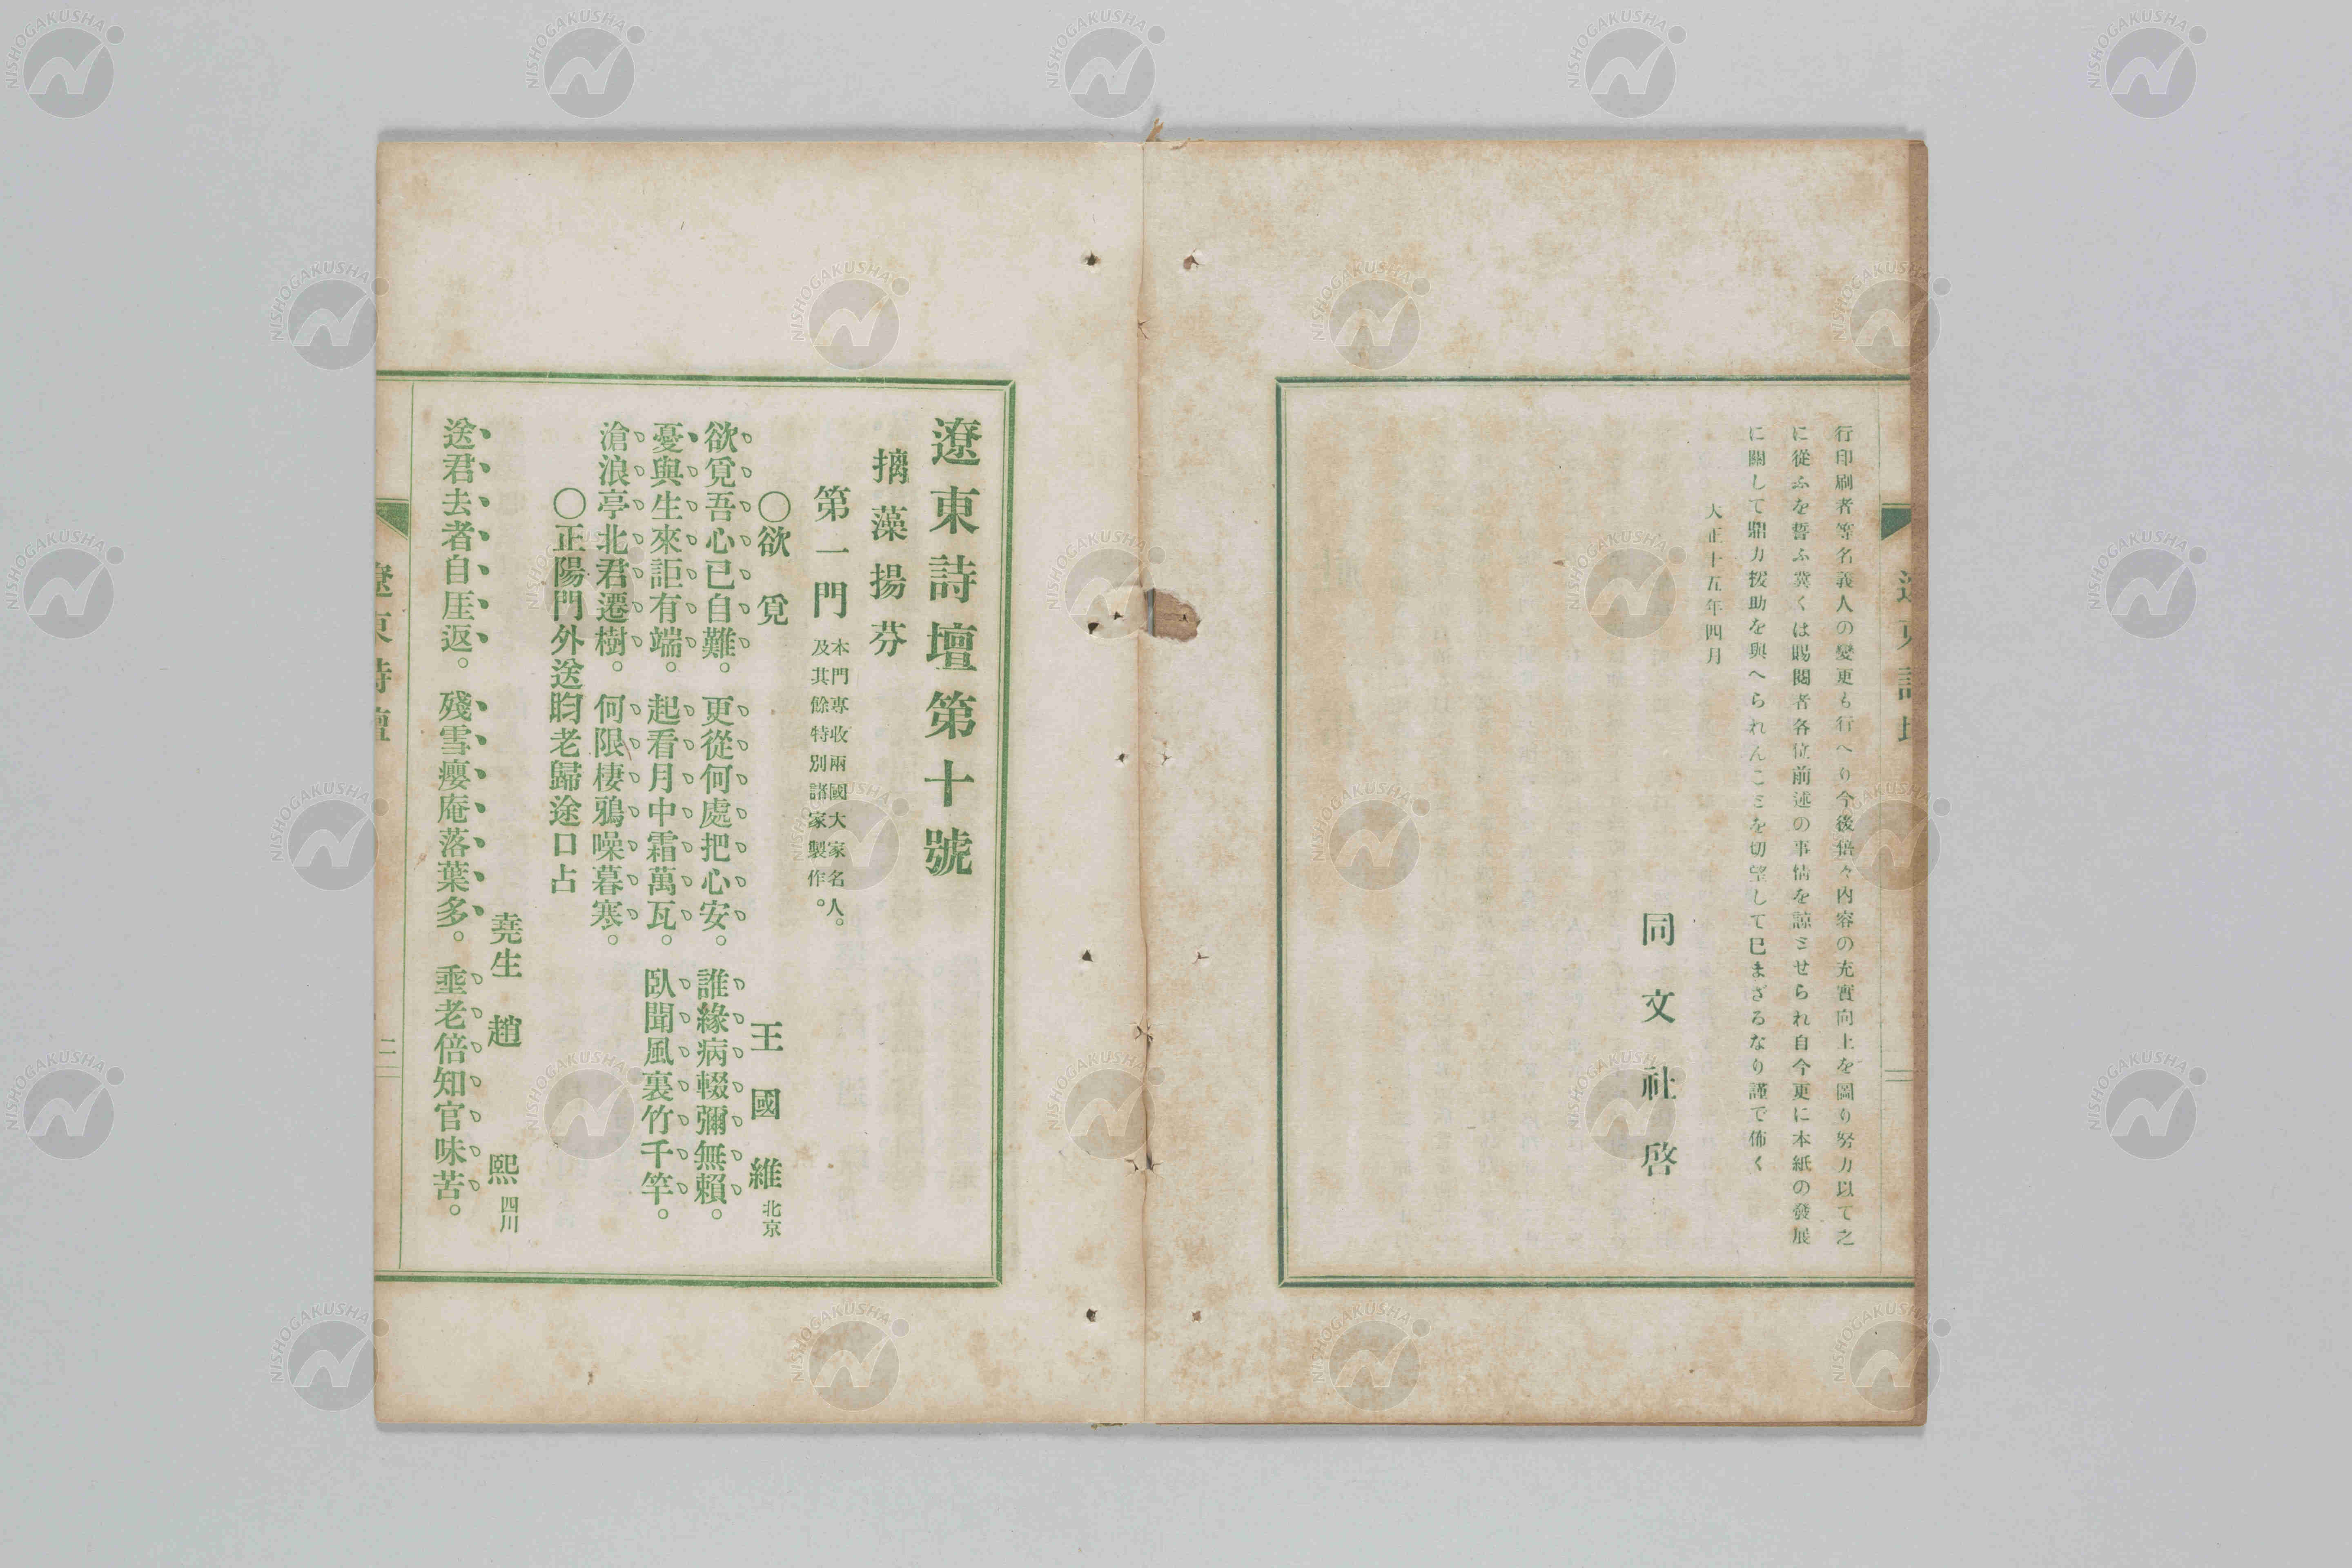 行印刷者等名義人の變更も行へり今後倍々內容の充實向上を圖り努力以て之
に從ふを誓ふ冀くは賜閱者各位前述の事情を諒ミせられ自今更に本紙の發展
に關して鼎力援助を與へられんこミを切望して已まざるなり謹で佈く
大正十五年四月
同文社啓
遼東詩壇第十號
摛藻揚芬
第一門 本門專收兩國大家名人。
及其餘特別諸家製作。
〇欲覓
王國維 北京
欲覓吾心已自難。更從何處把心安。誰緣病輟彌無賴。
憂與生來詎有端。起看月中霜萬瓦。臥聞風裏竹千竿。
滄浪亭北君遷樹。何限棲鴉噪暮寒。
〇正陽門外送畇老歸途口占
堯生 趙熙 四川
送君去者自厓返。殘雪癭庵落葉多。垂老倍知官味苦。
遼東詩壇
二
NISHOGAKUSHA